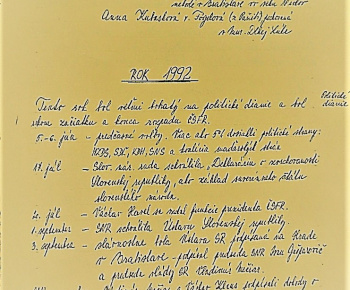 nielsē v Bratislave vo veku
Anna Kubaslová r. Fogdová (z Pažít) pohrebná
v Dom.
ROK 1992
Politické dianie
Tento rok bol veľmi bohatý na politické dianie a bol
rokom začiatku a konca rozpadu ČSFR.
5.-6. júna – predčasné voľby. Viac ako 5% dosiahli politické strany:
HZDS, SDĽ, KDH, SNS a koalícia maďarských strán
17. júl – Slov. nár. rada schválila Deklaráciu o zvrchovanosti
Slovenskej republiky, ako základ suverénneho štátu
slovenského národa.
20. júl – Václav Havel sa vzdal funkcie prezidenta ČSFR.
1. septembra – SNR schválila Ústavu Slovenskej republiky.
3. septembra – slávnostne bola Ústava SR podpísaná na Hrade
v Bratislave – podpísal predseda SNR Ivan Gašparovič
a predseda vlády SR Vladimír Mečiar.
Mečiar a Václav Klaus podpísali dohody o